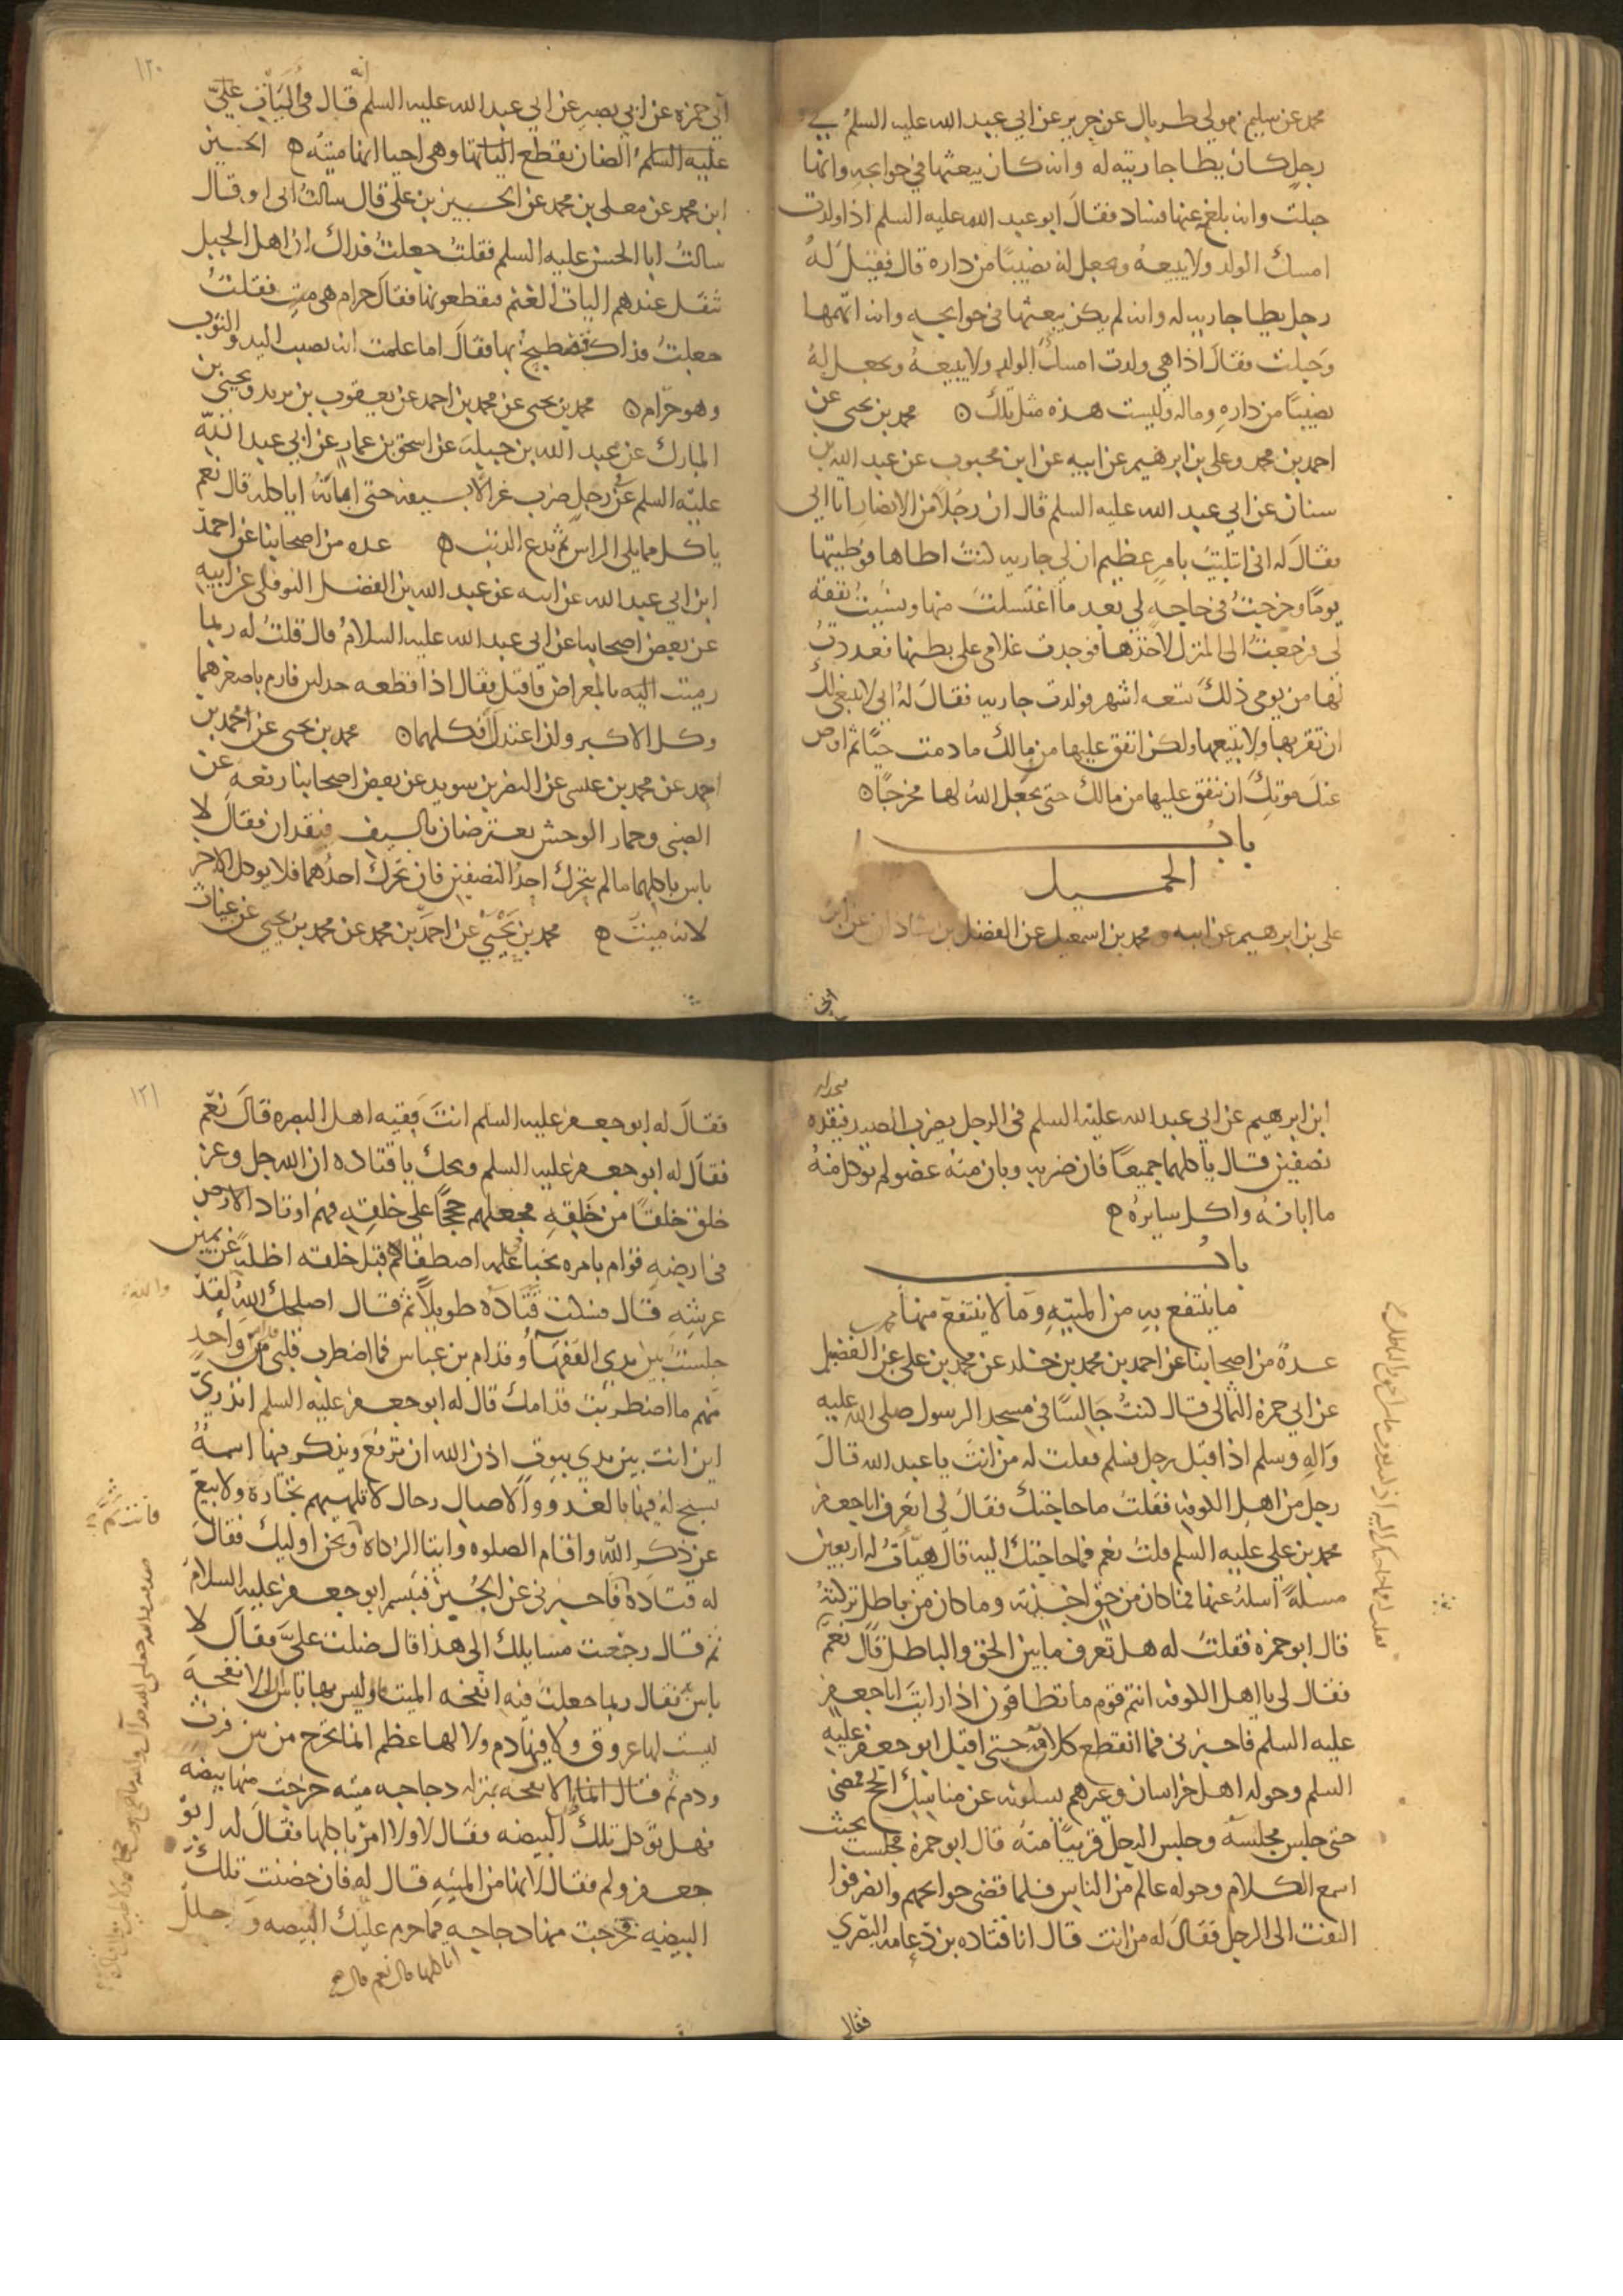 محمد عن سليم مولى طربال عن حريز عن ابي عبد الله عليه السلم في
رجل كان يطا جارية له وانه كان يبعثها في حوايجه وانها
حبلت وانه بلغه عنها فساد فقال ابو عبد الله عليه السلم اذا ولدت
امسك الولد ولا يبيعه ويجعل له نصيبًا من داره قال فقيل له
رجل يطا جاريه له وانه لم يكن يبعثها في حوايجه وانه اتهمها
وحبلت فقال اذا هي ولدت امسك الولد ولا يبيعه ويجعل له
نصيبًا من داره وماله وليست هذه مثل تلك ٥ محمد بن يحيى عن
احمد بن محمد وعلي بن ابرهيم عن ابيه عن ابن محبوب عن عبد الله بن
سنان عن ابي عبد الله عليه السلم قال ان رجلاً من الانصار اتا ابي
فقال له اني ابتليت بامر عظيم ان لي جاريه كنت اطاها فوطيتها
يومًا وخرجت في حاجه لي بعد ما اغتسلت منها ونسيت نفقة
لي فرجعت الى المنزل لاخذها فوجدت غلامي على بطنها فعددت
لها من يومي ذلك تسعه اشهر فولدت جاريه فقال له ابي لا ينبغي لك
ان تقربها ولا تبيعها ولكن انفق عليها من مالك ما دمت حيًا ثم اوص
عند موتك ان ينفق عليها من مالك حتى يجعل الله لها مخرجًا ٥
باب
الحميل
علي بن ابرهيم عن ابيه و محمد بن اسمعيل عن الفضل بن شاذان عن ابن
١٢٠
ابي حمزه عن ابي بصير عن ابي عبد الله عليه السلم انه قال في اليات علي
عليه السلم الضان يقطع الياتها وهي احيا انها ميته ه الحسين
ابن محمد عن معلى بن محمد عن الحسين بن علي قال سالت ابي او قال
سالت ابا الحسن عليه السلم فقلت جعلت فداك ان اهل الجبل
تثقل عندهم اليات الغنم فيقطعونها فقال حرام هي ميت فقلت
جعلت فداك فنصطبح بها فقال اما علمت انه يصيب اليد والثوب
وهو حرام ٥ محمد بن يحيى عن محمد بن احمد عن يعقوب بن يزيد ويحيى بن
المبارك عن عبد الله بن جبلة عن اسحق بن عمار عن ابي عبد الله
عليه السلم عن رجل ضرب غزالا بسيفه حتى ابانه اياكله قال نعم
ياكل مما يلي الراس ثم يدع الذنب ه عده من اصحابنا عن احمد
ابن ابي عبد الله عن ابيه عن عبد الله بن الفضل النوفلي عن ابيه
عن بعض اصحابنا عن ابي عبد الله عليه السلام قال قلت له ربما
رميت اليه بالمعراض فاقتل فقال اذا قطعه جدلين فارم باصغرهما
وكل الاكبر وان اعتدل فكلهما ٥ محمد بن يحيى عن احمد بن
احمد عن محمد بن عيسى عن النضر بن سويد عن بعض اصحابنا رفعه عن
الضبي وحمار الوحش يعترضان بالسيف فيقدان فقال لا
باس باكلهما ما لم يتحرك احد النصفين فان تحرك احدهما فلا يوكل الاخر
لانه ميت ه محمد بن يحيى عن احمد بن محمد عن محمد بن يحيى عن غياث
ابن ابرهيم عن ابي عبد الله عليه السلم في الرجل يضرب الصيد فيقده
نصفين قال ياكلهما جميعًا فان ضربه وبان منه عضو لم يوكل منه
ما ابانه واكل سايره ه
باب
ما ينتفع به من الميته وما لا ينتفع منها
عدة من اصحابنا عن احمد بن محمد بن خلد عن محمد بن علي عن الفضيل
عن ابي حمزة الثمالي قال كنت جالسًا في مسجد الرسول صلى الله عليه
واله وسلم اذ اقبل رجل فسلم فقلت له من انت يا عبد الله قال
رجل من اهل الكوفه فقلت ما حاجتك فقال لي اتعرف ابا جعفر
محمد بن علي عليه السلم قلت نعم فما حاجتك اليه قال هيات له اربعين
مسلة اسله عنها فما كان من حق اخذته وما كان من باطل تركته
قال ابو حمزه فقلت له هل تعرف ما بين الحق والباطل قال نعم
فقال لي يا اهل الكوفه انتم قوم ما تطاقون اذا رايت ابا جعفر
عليه السلم فاخبرني فما انقطع كلامه حتى اقبل ابو جعفر عليه
السلم وحوله اهل خراسان وغيرهم يسلونه عن مناسك الحج فمضى
حتى جلس مجلسه وجلس الرجل قريبًا منه قال ابو حمزة فجلست بحيث
اسمع الكلام وحوله عالم من الناس فلما قضى حوايجهم وانصرفوا
التفت الى الرجل فقال له من انت قال انا قتاده بن دعامه البصري
فقال
١٢١
فقال له ابو جعفر عليه السلم انت فقيه اهل البصره قال نعم
فقال له ابو جعفر عليه السلم ويحك يا قتاده ان الله جل وعز
خلق خلقًا من خلقه فجعلهم حججًا على خلقه فهم اوتاد الارض
في ارضه قوام بامره نجبا علمه اصطفاهم قبل خلقه اظلة عن يمين
عرشه قال فسكت قتاده طويلاً ثم قال اصلحك الله لقد
جلست بين يدي الفقهاء وقدام بن عباس فما اضطرب قلبي قدام واحد
منهم ما اضطربت قدامك قال له ابو جعفر عليه السلم اتدري
اين انت بين يدي بيوت اذن الله ان ترفع ويذكر فيها اسمه
يسبح له فيها بالغدو والاصال رجال لا تلهيهم تجارة ولا بيع
عن ذكر الله واقام الصلوه وايتا الزكاه ونحن اوليك فقال
له قتادة فاخبرني عن الجبن فتبسم ابو جعفر عليه السلام
ثم قال رجعت مسايلك الى هذا قال ضلت علي فقال لا
باس به فقال ربما جعلت فيه انفحه الميت قال ليس بها باس ان الانفحة
ليست لها عروق ولا فيها دم ولا لها عظم انما تخرج من بين فرث
ودم ثم قال انما الانفحه بمنزله دجاجه ميته خرجت منها بيضه
فهل تؤكل تلك البيضه فقال لا ولا امر باكلها فقال له ابو
جعفر ولم فقال لانها من الميته قال له فان حضنت تلك
البيضه فخرجت منها دجاجه اتاكلها قال نعم قال فما حرم عليك البيضه وحلل